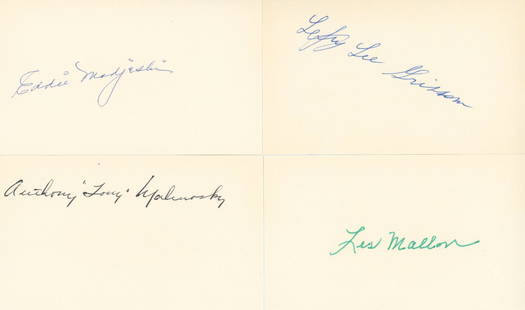 Eddie Madjeski
Lefty Lee Grissom
Anthony "Tony" Malinosky
Les Mallon